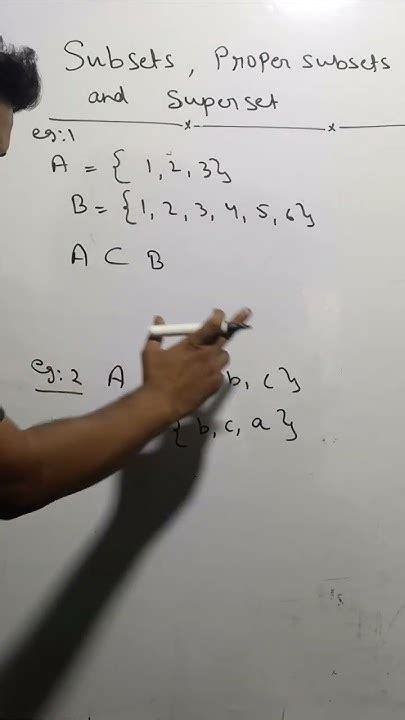 Subsets, Proper subsets
and Superset
eg:1
A = { 1, 2, 3}
B = {1, 2, 3, 4, 5, 6}
A ⊂ B
eg:2 A b, c}
{b, c, a}